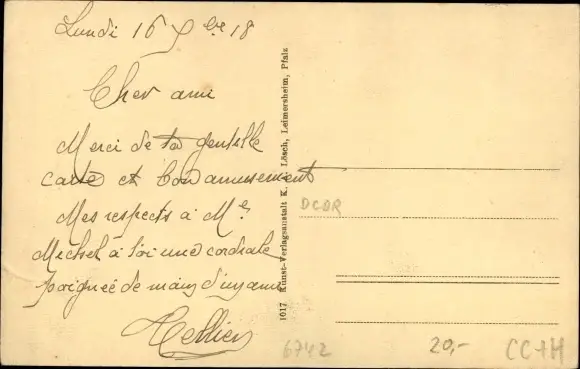 Lundi 16 Xbre 18
Cher ami
Merci de ta gentille
carte et bon amusement
Mes respects à Me
Michel à toi une cordiale
poignée de main d'un ami
Tellier
1617 Kunst-Verlagsanstalt K. Lösch, Leimersheim, Pfalz
DCOR
6742
20,-
CC+H